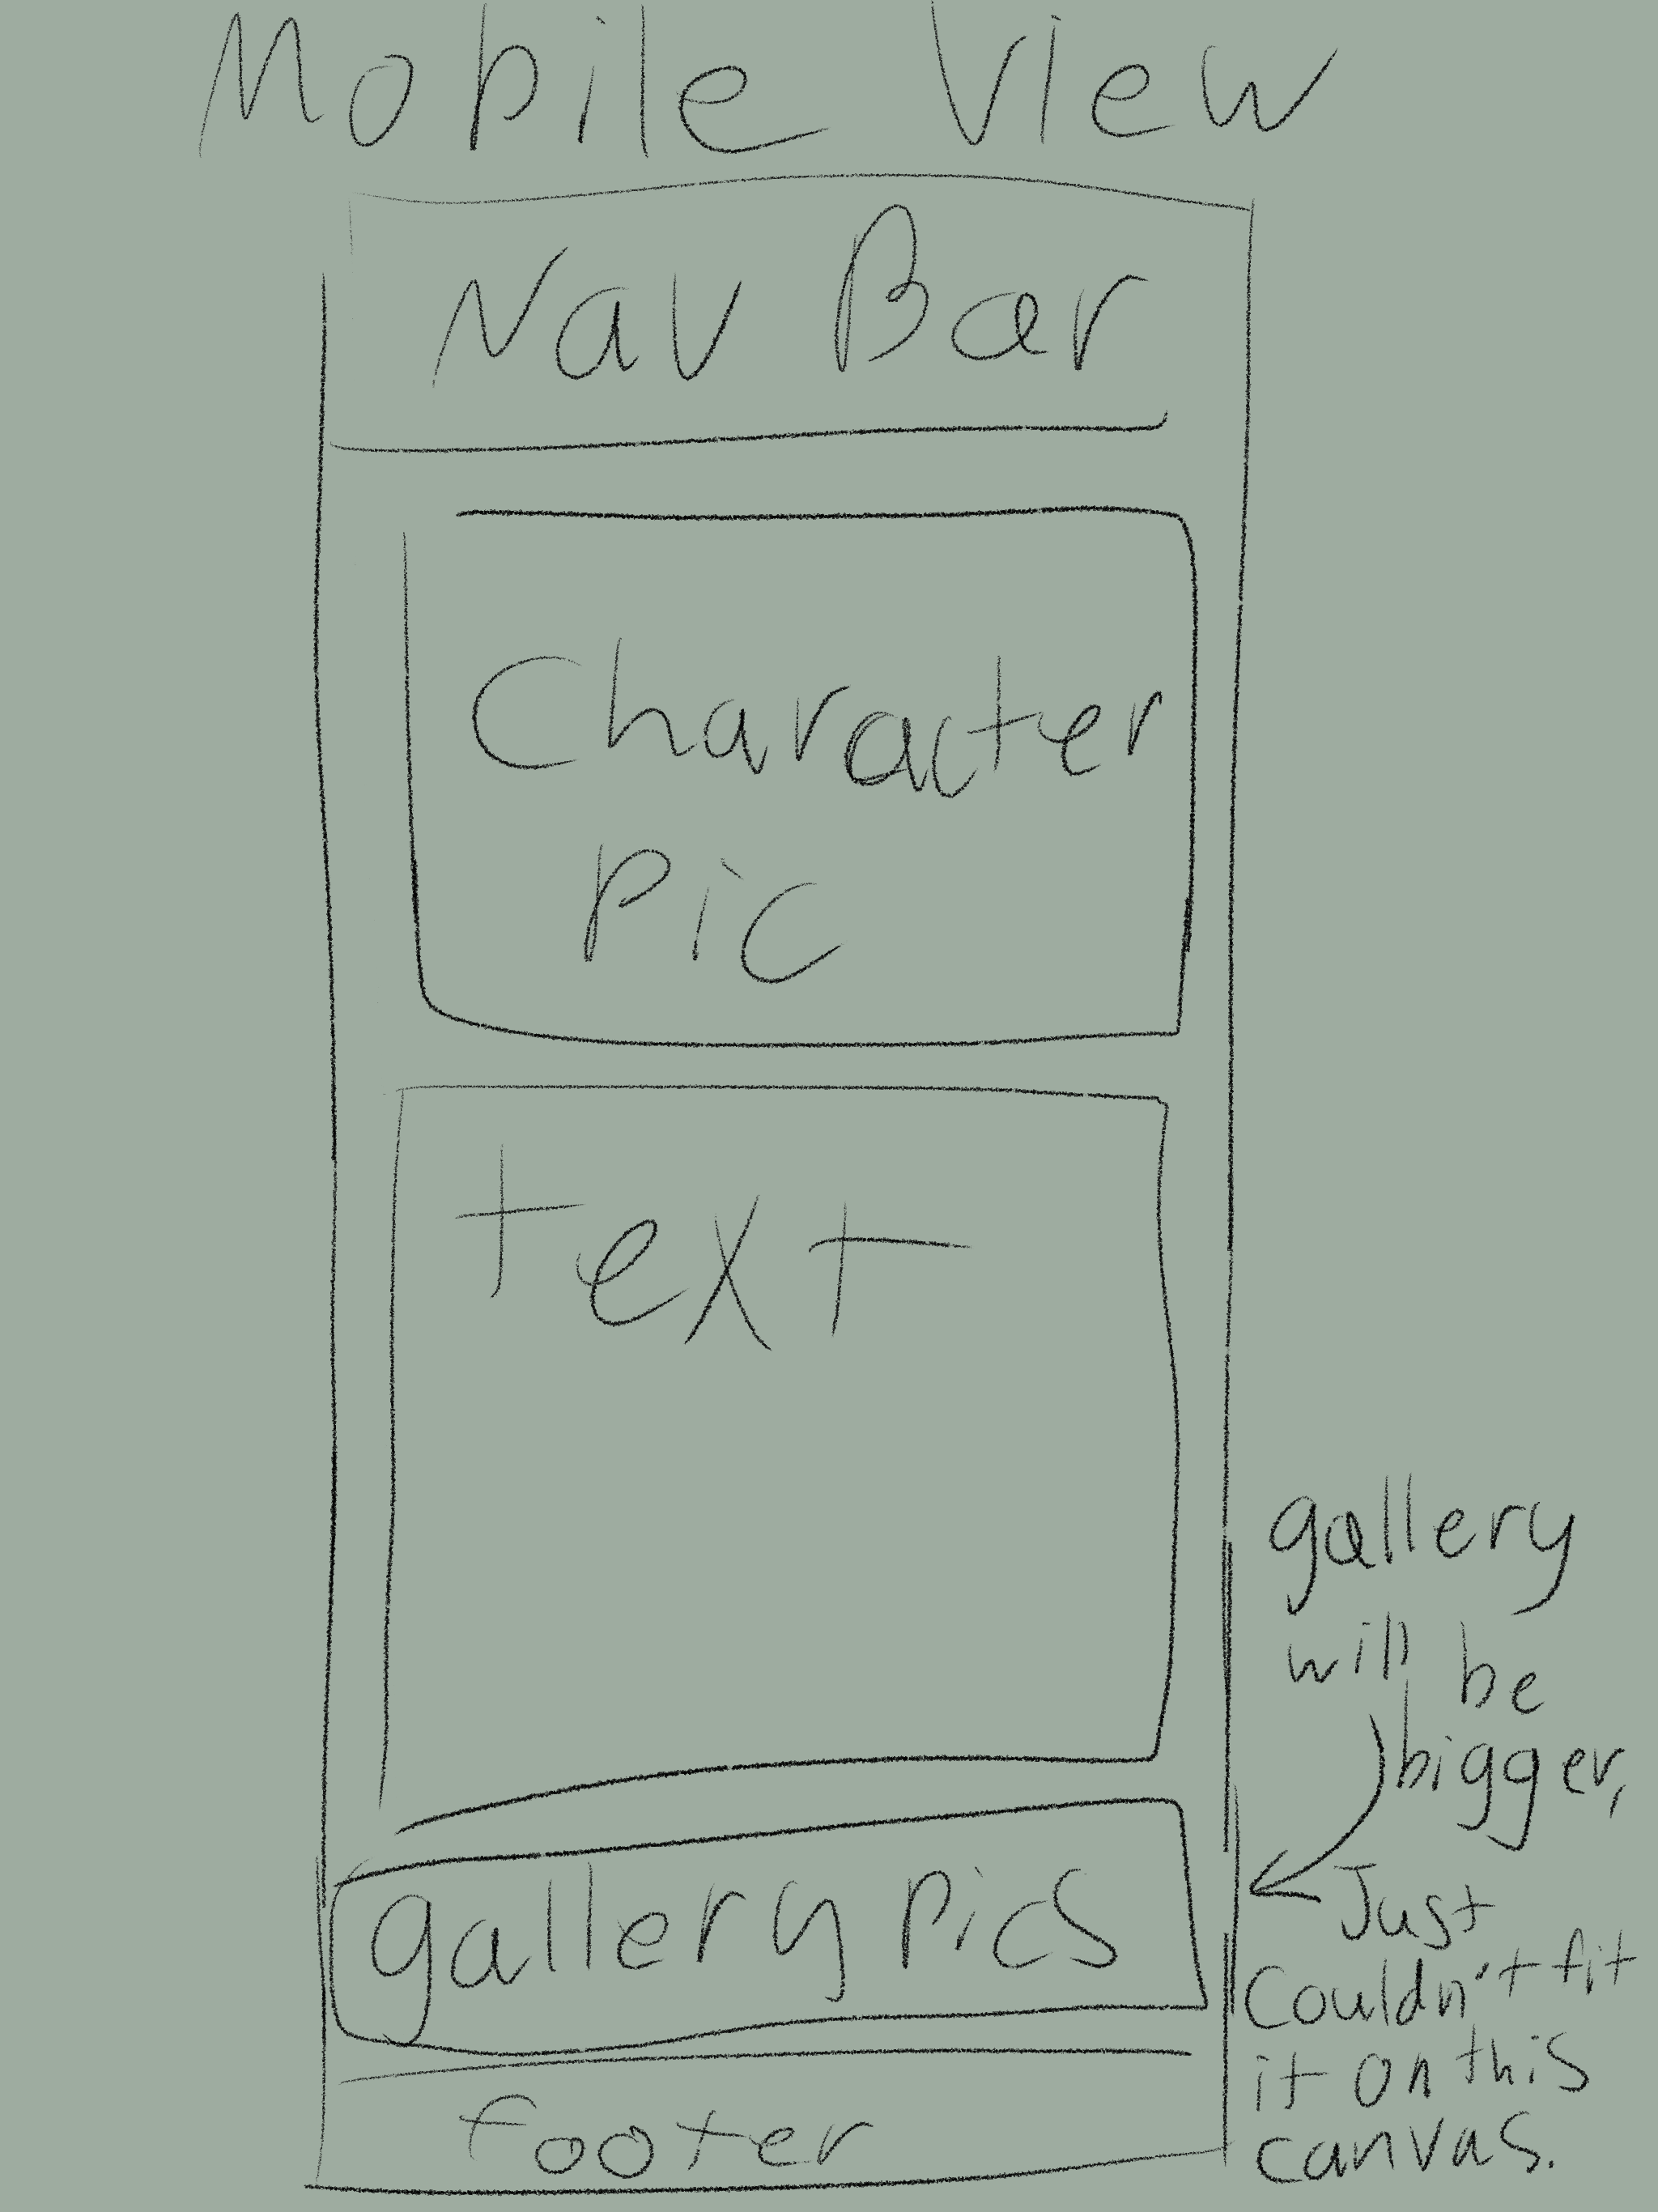 Mobile View
Nav Bar
Character
Pic
text
gallery pics
footer
gallery
will be
bigger,
Just
Couldn't fit
it on this
canvas.